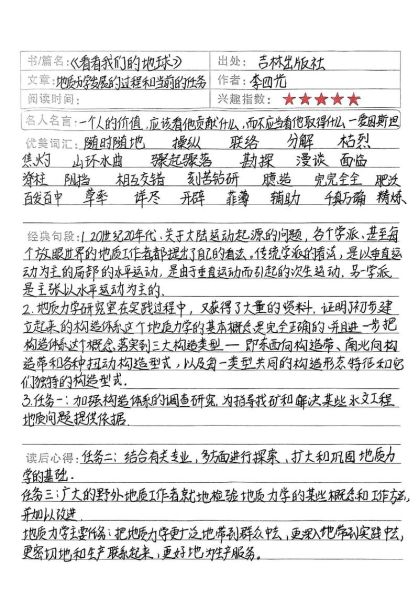 书/篇名:《看看我们的地球》 出处: 吉林出版社
文章: 地质力学发展的过程和当前的任务 作者: 李四光
阅读时间: 兴趣指数: ★★★★★
名人名言: 一个人的价值,应该看他贡献什么,而不应当看他取得什么 —爱因斯坦
优美词汇: 随时随地 操纵 联络 分解 枯裂
焦灼 山环水曲 骤起骤落 勘探 漫谈 面临
脊柱 阻挡 相互交错 刻苦钻研 臆造 完完全全 肥沃
百发百中 草率 详尽 开辟 菲薄 辅助 千真万确 精炼
经典句段: 1.20世纪20年代、关于大陆运动起源的问题,各个学派、甚至每
个放眼世界的地质工作者都提出了自己的看法。传统学派的看法,是以垂直运
动为主的局部的水平运动,是由于垂直运动而引起的次生运动。另一学派,
是主张以水平运动为主的。
2.地质力学研究室在实践过程中,又获得了大量的资料,证明初步建
立起来的构造体系这个地质力学的基本概念是完全正确的,并且进一步把
构造体系这个概念落实到三大构造类型——即东西向构造带、南北向构
造带和各种扭动构造型式,以及每一类型共同的构造形态特征和它
们独特的构造型式。
3.任务一:加强构造体系的调查研究,为指导找矿和解决某些水文工程
地质问题提供依据.
读后心得: 任务二:结合有关专业,多方面进行探索、扩大和巩固地质力
学的基础.
任务三:广大的野外地质工作者就地检验地质力学的某些概念和工作方法,
并加以改进.
地质力学主要任务:把地质力学更广泛地带到群众中去,更深入地带到实践中去,
更密切地和生产联系起来,更好地为生产服务。